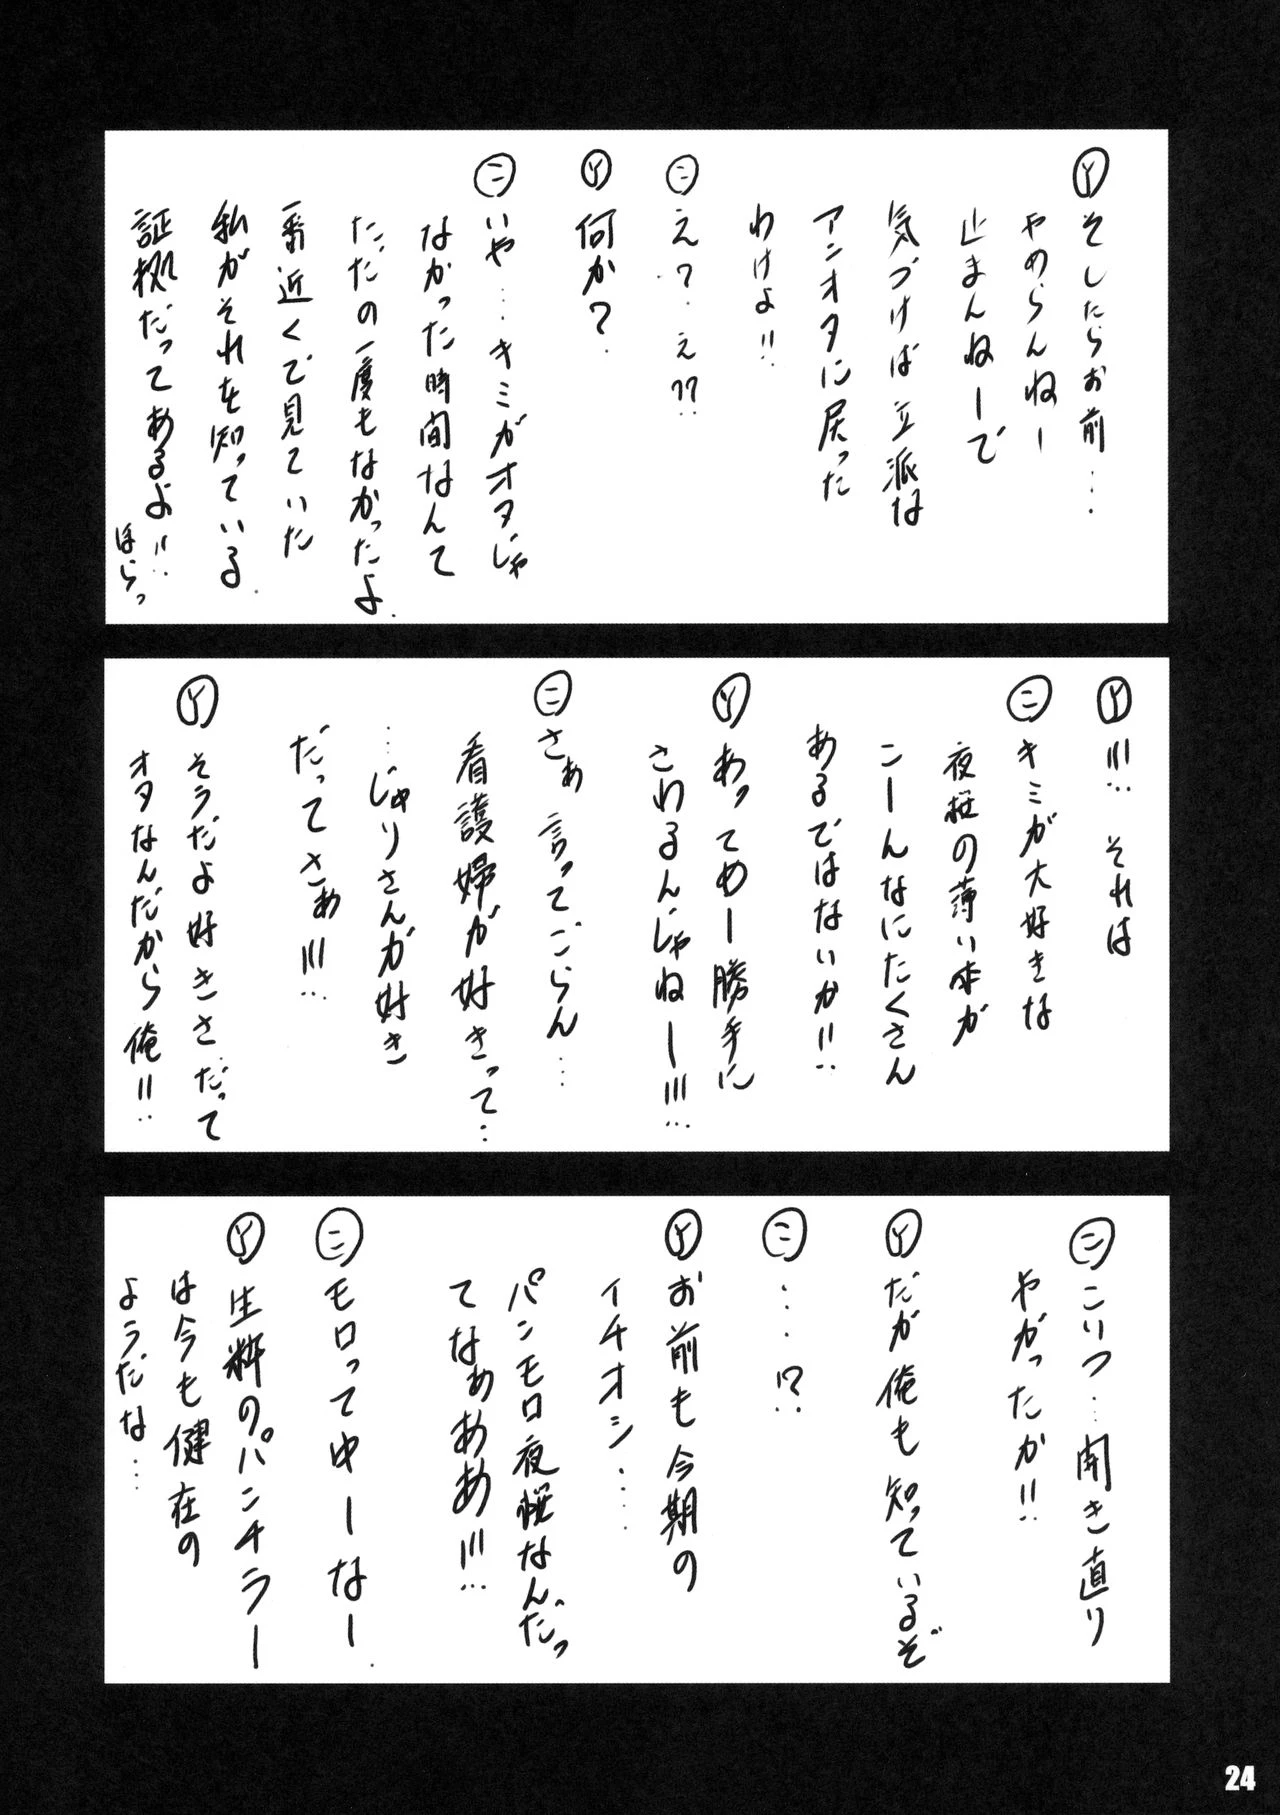 Ⓨそしたらお前…
やめらんねー
止まんねーで
気づけば立派な
アンオタに戻った
わけよ!!
㊁え?…え??
Ⓨ何か?
㊁いや……キミがオタじゃ
なかった時間なんて
ただの一度もなかったよ.
一番近くで見ていた
私がそれを知っている.
証拠だってあるよ!!
ほらっ
Ⓨ!!! それは
㊁キミが大好きな
夜桜の薄い本が
こーんなにたくさん
あるではないか!!
Ⓨあってめー勝手に
さわるんじゃねー!!!
㊁さぁ言ってごらん…
看護婦が好きって…
…じゅりさんが好き
だってさぁ!!!
Ⓨそうだよ好きさだって
オタなんだから俺!!
㊁こいつ…開き直り
やがったか!!
Ⓨだが俺も知っているぞ
㊁…!?
Ⓨお前も今期の
イチオシ……
パンモロ夜桜なんだっ
てなぁああ!!!
㊁モロってゆーなー.
Ⓨ生粋のパンチラー
は今も健在の
ようだな……
24